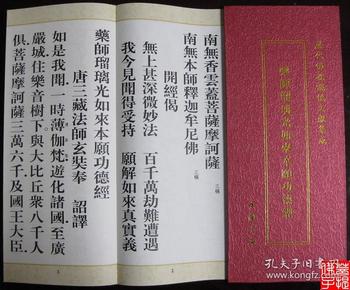 南無香雲蓋菩薩摩訶薩 三稱
南無本師釋迦牟尼佛 三稱
開經偈
無上甚深微妙法 百千萬劫難遭遇
我今見聞得受持 願解如來真實義
藥師瑠璃光如來本願功德經
唐三藏法師玄奘奉 詔譯
如是我聞一時薄伽梵遊化諸國至廣
嚴城住樂音樹下與大比丘眾八千人
俱菩薩摩訶薩三萬六千及國王大臣
藥師瑠璃光如來本願功德經
孔夫子旧书网